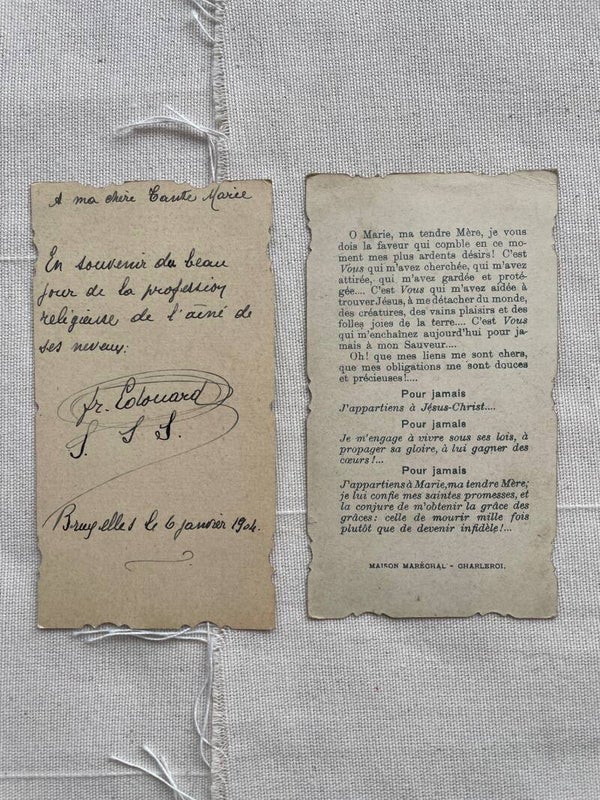 A ma chère Tante Marie
En souvenir du beau
jour de la profession
religieuse de l'aîné de
ses neveux.
fr. Edouard
S. S. S.
Bruxelles le 6 janvier 1904.
O Marie, ma tendre Mère, je vous
dois la faveur qui comble en ce mo-
ment mes plus ardents désirs! C'est
Vous qui m'avez cherchée, qui m'avez
attirée, qui m'avez gardée et proté-
gée.... C'est Vous qui m'avez aidée à
trouver Jésus, à me détacher du monde,
des créatures, des vains plaisirs et des
folles joies de la terre.... C'est Vous
qui m'enchaînez aujourd'hui pour ja-
mais à mon Sauveur....
Oh! que mes liens me sont chers,
que mes obligations me sont douces
et précieuses!....
Pour jamais
J'appartiens à Jésus-Christ....
Pour jamale
Je m'engage à vivre sous ses lois, à
propager sa gloire, à lui gagner des
cœurs!...
Pour jamais
J'appartiens à Marie, ma tendre Mère;
je lui confie mes saintes promesses, et
la conjure de m'obtenir la grâce des
grâces: celle de mourir mille fois
plutôt que de devenir infidèle!...
MAISON MARÉCHAL - CHARLEROI.